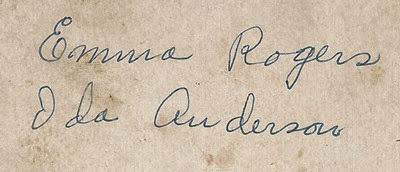 Emma Rogers
Ida Anderson